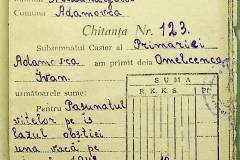 Comuna Adamovca
Chitanța Nr. 123.
Subsemnatul Casier al Primariei
Adamovca am primit dela Omelcenco
Ivan.
SUMA
R. K. K. S. P.
următoarele sume:
Pentru Pasunatul
vitelor pe is
lazul obștiei
una vacă pe